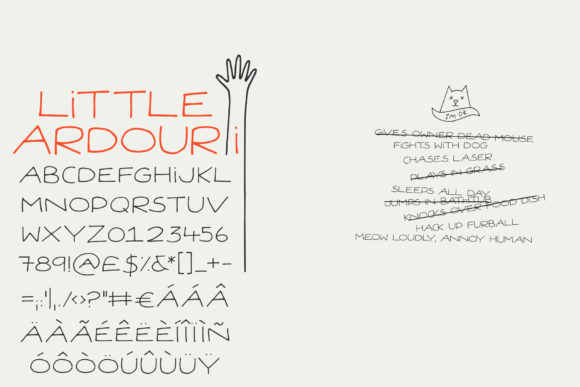 LiTTLE
ARDOUR i
ABCDEFGHiJKL
MNOPQRSTUV
WXYZ0123456
789!@E$%&*[]_+-
=¡;:'|,./<>?"#€ÁÀÂ
ÄÀÃÉÊËÈÍÎÏÌÑ
ÓÔÒÖÚÛÙÜŸ
I'M OK
GIVES OWNER DEAD MOUSE
FIGHTS WITH DOG
CHASES LASER
PLAYS IN GRASS
SLEEPS ALL DAY
JUMPS IN BATHTUB
KNOCKS OVER FOOD DISH
HACK UP FURBALL
MEOW LOUDLY, ANNOY HUMAN